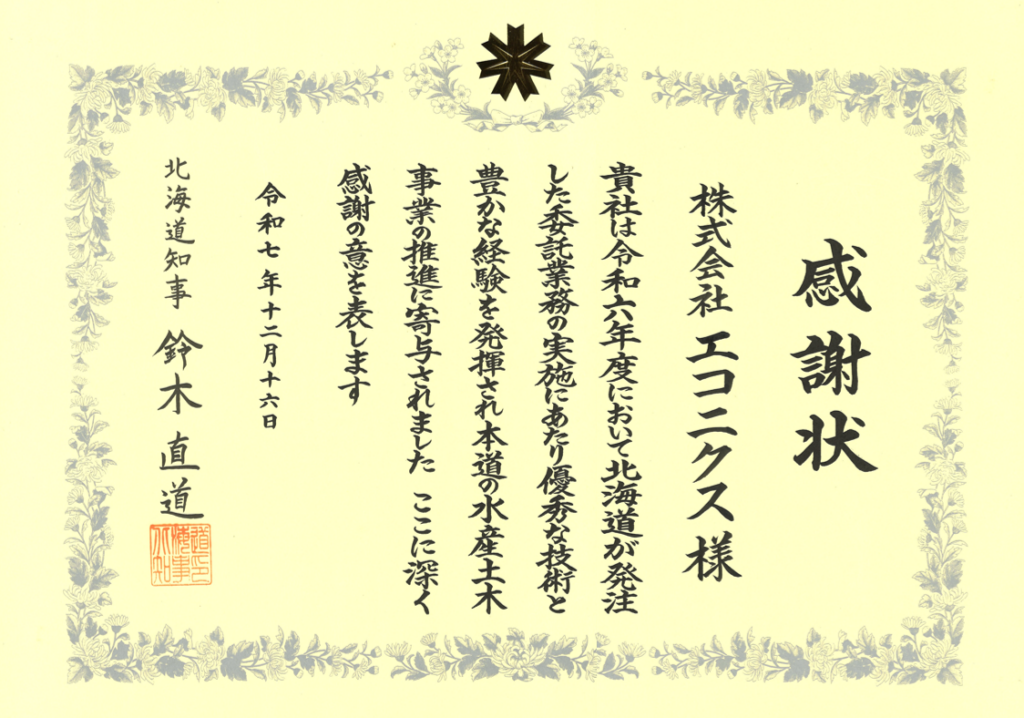 感謝状
株式会社 エコニクス 様
貴社は令和六年度において北海道が発注
した委託業務の実施にあたり優秀な技術と
豊かな経験を発揮され本道の水産土木
事業の推進に寄与されました ここに深く
感謝の意を表します
令和七年十二月十六日
北海道知事 鈴木 直道